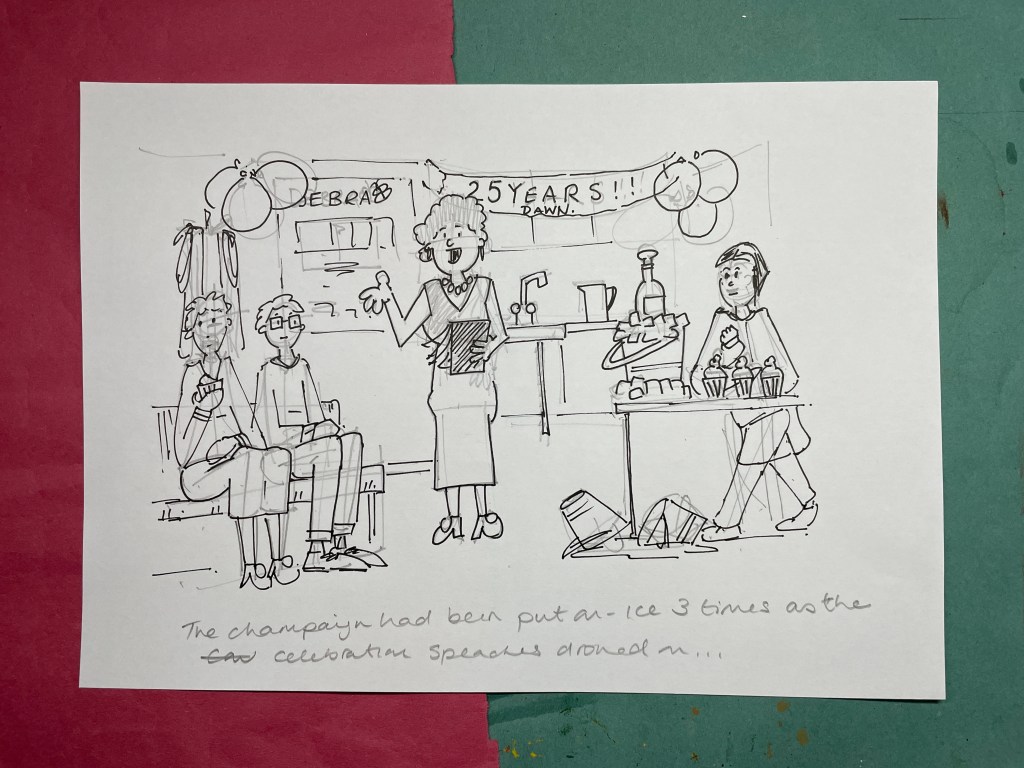 DEBRA
25 YEARS!!!
DAWN.
The champaign had been put on-ice 3 times as the
celebration speaches droned on...